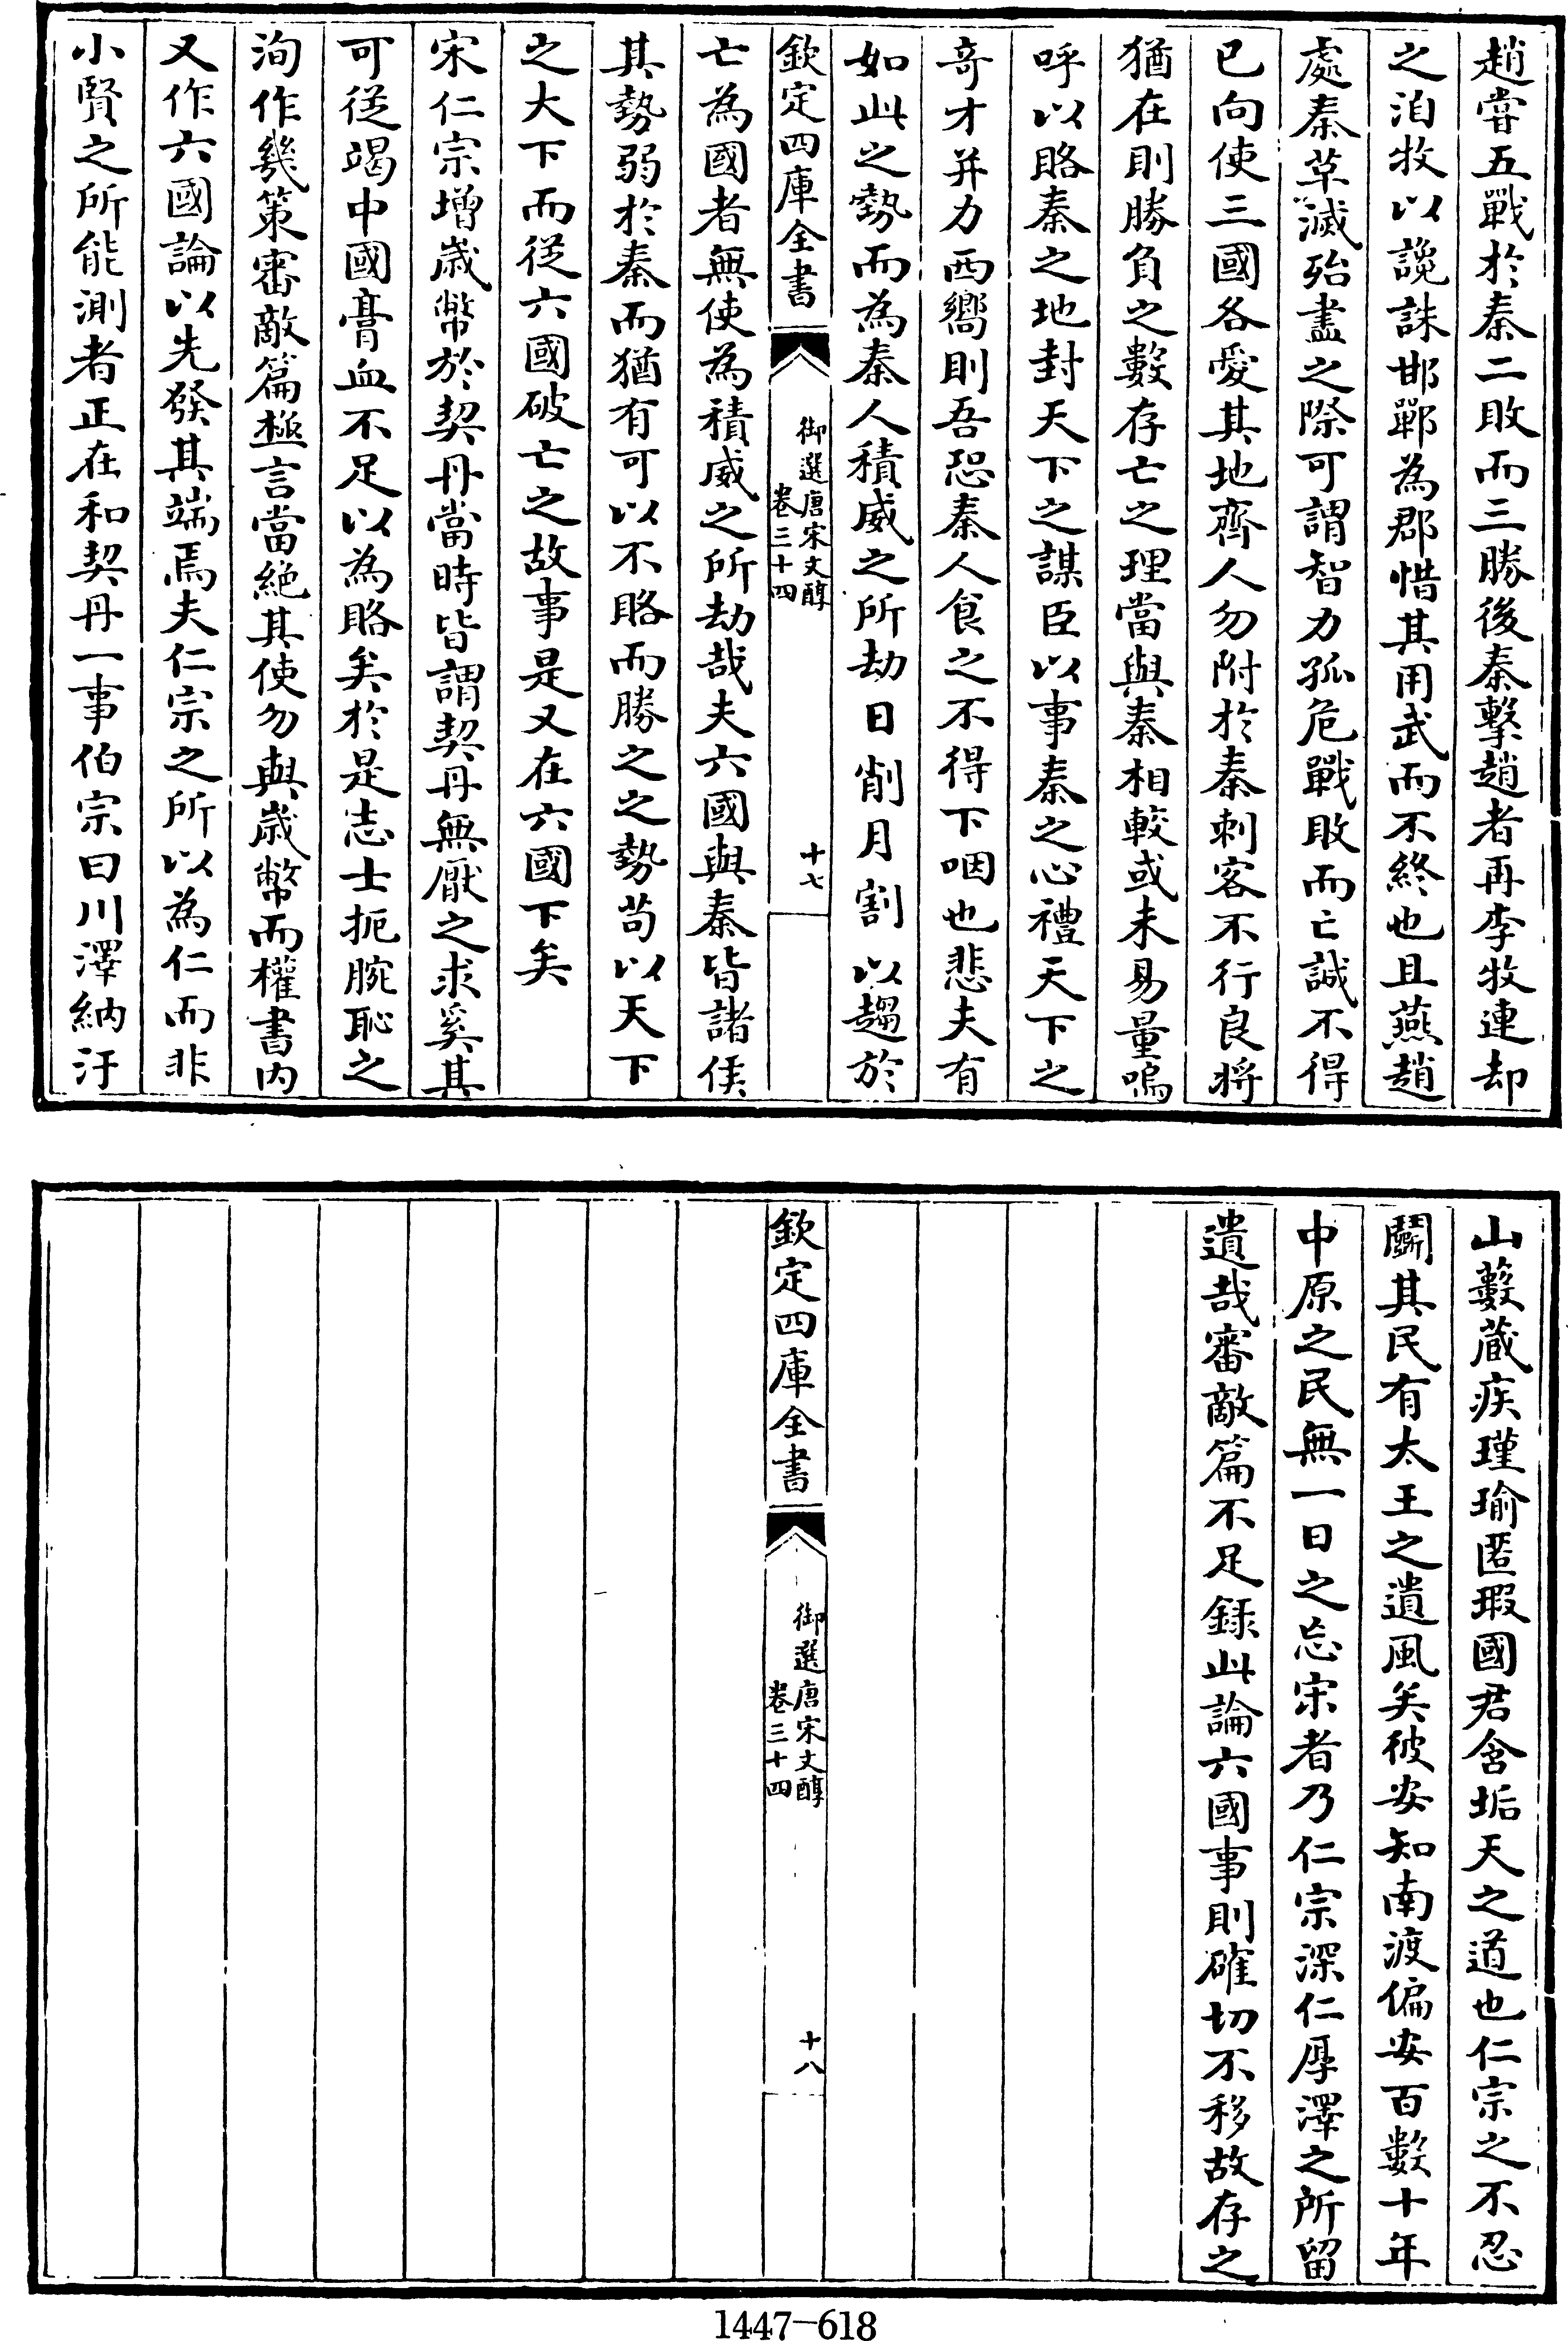 趙嘗五戰於秦二敗而三勝後秦擊趙者再李牧連却
之洎牧以讒誅邯鄲為郡惜其用武而不終也且燕趙
處秦革滅殆盡之際可謂智力孤危戰敗而亡誠不得
已向使三國各愛其地齊人勿附於秦刺客不行良將
猶在則勝負之數存亡之理當與秦相較或未易量嗚
呼以賂秦之地封天下之謀臣以事秦之心禮天下之
奇才并力西嚮則吾恐秦人食之不得下咽也悲夫有
如此之勢而為秦人積威之所劫日削月割以趨於
欽定四庫全書
御選唐宋文醇
卷三十四
十七
亡為國者無使為積威之所劫哉夫六國與秦皆諸侯
其勢弱於秦而猶有可以不賂而勝之之勢苟以天下
之大下而從六國破亡之故事是又在六國下矣
宋仁宗增歲幣於契丹當時皆謂契丹無厭之求奚其
可從竭中國膏血不足以為賂矣於是志士扼腕恥之
洵作幾策審敵篇極言當絕其使勿與歲幣而權書內
又作六國論以先發其端焉夫仁宗之所以為仁而非
小賢之所能測者正在和契丹一事伯宗曰川澤納汙
山藪藏疾瑾瑜匿瑕國君含垢天之道也仁宗之不忍
鬬其民有太王之遺風矣彼安知南渡偏安百數十年
中原之民無一日之忘宋者乃仁宗深仁厚澤之所留
遺哉審敵篇不足録此論六國事則確切不移故存之
欽定四庫全書
御選唐宋文醇
卷三十四
十八
1447-618